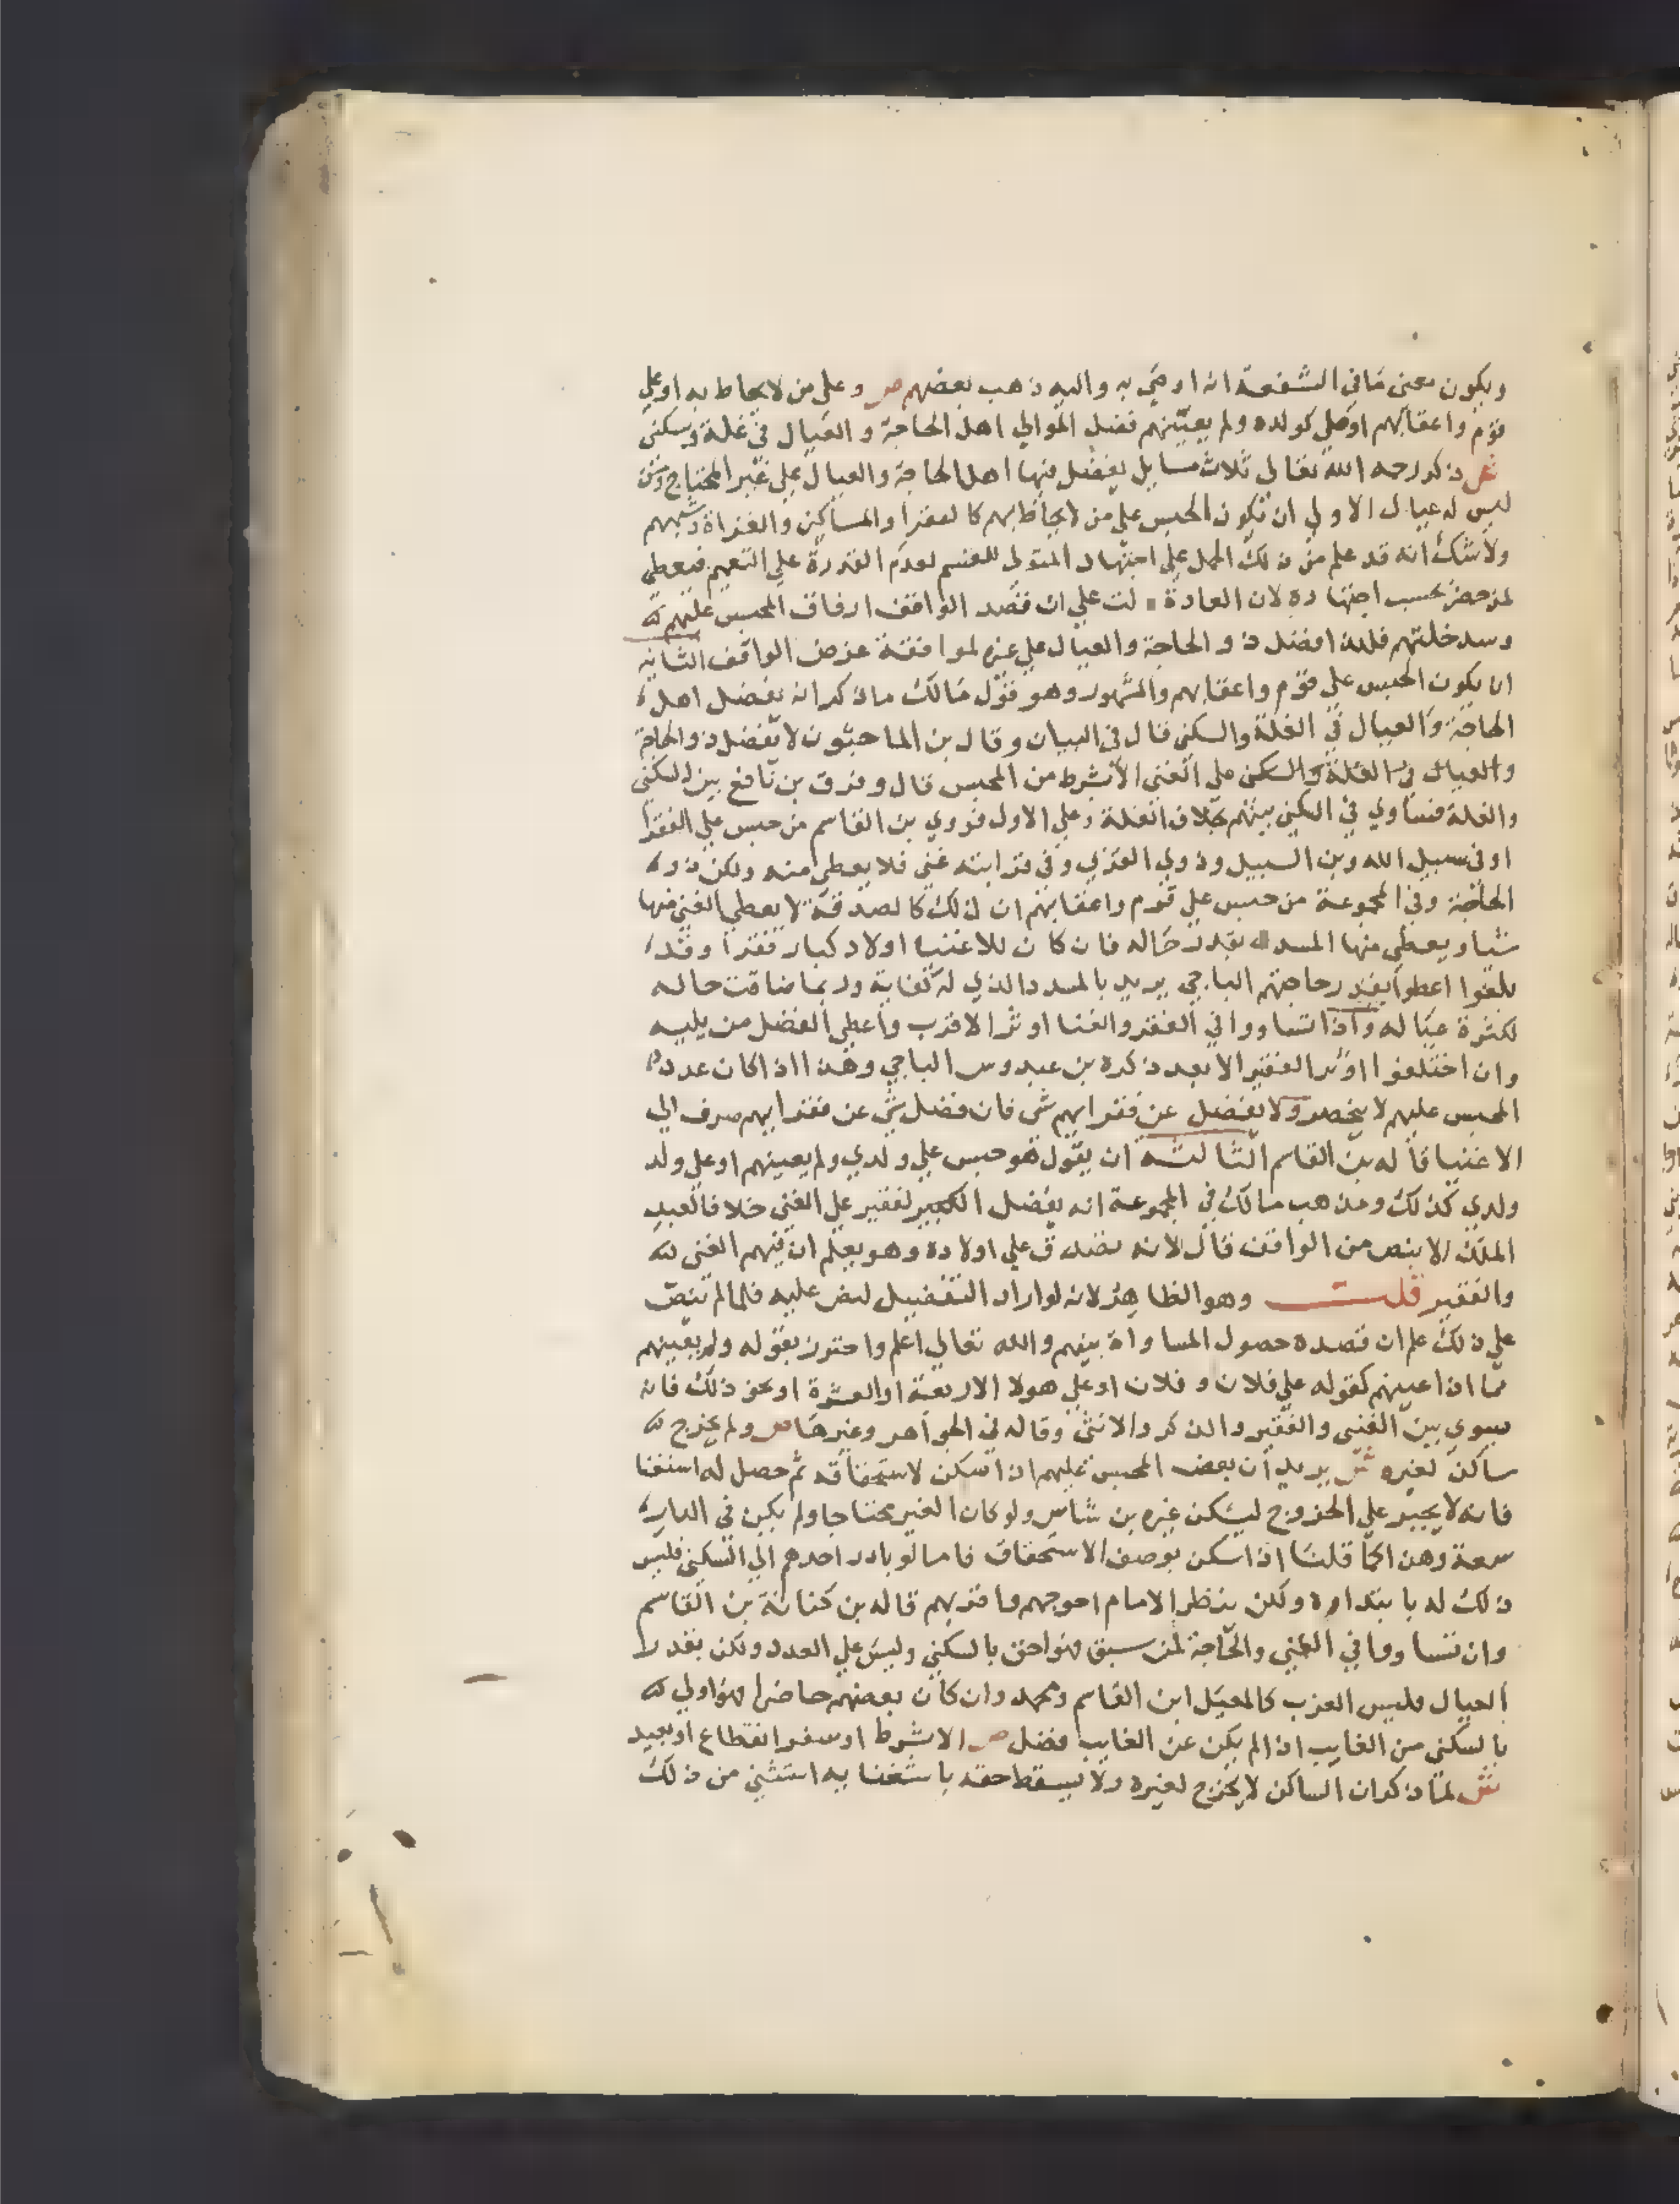 ويكون معنى ما في الشفعة انه اوصي به واليه ذهب بعضهم ص وعلى من لا يحاط به او على
قوم واعقابهم او على كولده ولم يعينهم فضل الموالي اهل الحاجة والعيال في غلة وسكنى
ش ذكر رحمه الله تعالى ثلاث مسايل يفضل فيها اهل الحاجة والعيال على غير المحتاج ومن
ليس له عيال الاولى ان تكون الحبس على من لا يحاط بهم كالفقرا والمساكين والغزاة وشبههم
ولا شك انه قد علم من ذلك الحمل على اجتهاد المتولى للقسم لعدم القدرة على التعميم فيعطى
لمن حضر بحسب اجتهاده لان العادة لت على ان قصد الواقف ارفاق المحبس عليهم
وسد خلتهم فلهذا فضل ذو الحاجة والعيال على غيره لموافقة غرض الواقف الثانيه
ان يكون الحبس على قوم واعقابهم والمشهور وهو قول مالك ما ذكر انه يفضل اهل
الحاجة والعيال في الغلة والسكنى قال في البيان وقال بن الماجشون لا يفضل ذو الحاجة
والعيال في الغلة والسكنى على الغنى الا بشرط من المحبس قال وفرق بن نافع بين السكنى
والغلة فساوي في السكنى بينهم بخلاف الغلة وعلى الاول فروي بن القاسم من حبس على الفقرا
او في سبيل الله وبن السبيل وذوي القربي وفي قرابته غني فلا يعطى منه ولكن ذوو
الحاجة وفي المجموعة من حبس على قوم واعقابهم ان ذلك كالصدقة لا يعطى الغني منها
شيا ويعطى منها المسدد بقدر حاله فان كان للاغنيا اولاد كبار فقرا وقد
بلغوا اعطوا بقدر حاجتهم الباجي يريد بالمسدد الذي له كفاية وربما ضاقت حاله
لكثرة عياله واذا تساووا في الفقر والغنا اوثر الاقرب واعطي الفضل من يليه
وان اختلفوا اوثر الفقير الابعد ذكره بن عبدوس الباجي وهذا اذا كان عدد
المحبس عليهم لا ينحصر ولا يفضل عن فقرايهم شى فان فضل شي عن فقرايهم صرف الي
الاغنيا قاله بن القاسم الثالثه ان يقول هو حبس على ولدي ولم يعينهم او على ولد
ولدي كذلك ومذهب مالك في المجموعة انه يفضل الكبير لفقير على الغني خلافا لعبد
الملك الا بنص من الواقف قال لانه تصدق على اولاده وهو يعلم ان فيهم الغني
والفقير قلت وهو الظاهر لانه لو اراد التفضيل لنص عليه فلما لم ينص
على ذلك علم ان قصده حصول المساواة بينهم والله تعالي اعلم واحترز بقوله ولم يعينهم
مما اذا عينهم كقوله على فلان وفلان او على هولا الاربعة او العشرة او نحو ذلك فانه
يسوي بين الغني والفقير والذكر والانثى وقاله في الجواهر وغيرها ص ولم يخرج
ساكن لغيره ش يريد ان بعض المحبس عليهم اذا سكن لاستحقاقه ثم حصل له استغنا
فانه لا يجبر على الخروج ليسكن غيره بن شاس ولو كان الغير محتاجا ولم يكن في الدار
سعة وهذا كما قلنا اذا سكن بوصف الاستحقاق فاما لو بادر احدهم الي السكنى فليس
ذلك له بابتداره ولكن ينظر الامام احوجهم واقربهم قاله بن كنانة بن القاسم
وان تساووا في الغني والحاجة لمن سبق فهو احق بالسكني وليس على العدد ولكن بقدر
العيال فليس العزب كالمعيل ابن القاسم ومحمد وان كان بعضهم حاضرا فهو اولى
بالسكني من الغايب اذا لم يكن عن الغايب فضل ص الا بشرط او سفر انقطاع او بعيد
ش لما ذكر ان الساكن لا يخرج لغيره ولا يسقط حقه باستغنا به استثني من ذلك